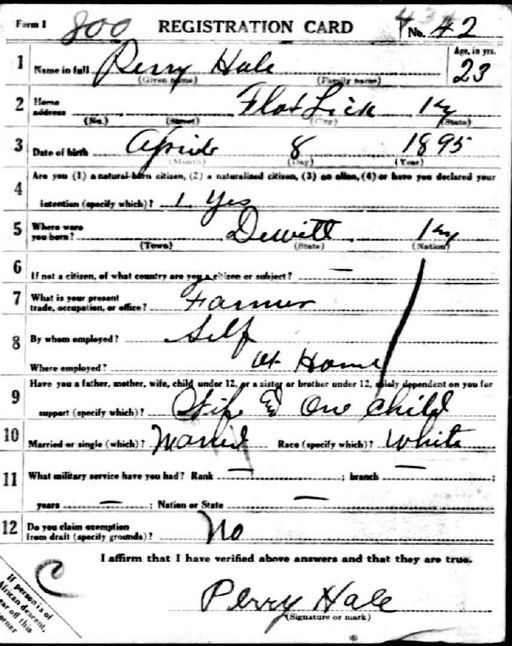 Form 1 800 REGISTRATION CARD No. 42
1 Name in full Perry Hale Age, in yrs. 23
(Given name) (Family name)
2 Home address Flat Lick Ky
(No.) (Street) (City) (State)
3 Date of birth April 8 1895
(Month) (Day) (Year)
4 Are you (1) a natural-born citizen, (2) a naturalized citizen, (3) an alien, (4) or have you declared your
intention (specify which)? 1 Yes
5 Where were you born? Dewitt Ky
(Town) (State) (Nation)
6 If not a citizen, of what country are you a citizen or subject? —
7 What is your present trade, occupation, or office? Farmer
8 By whom employed? Self
Where employed? At Home
9 Have you a father, mother, wife, child under 12, or a sister or brother under 12, solely dependent on you for
support (specify which)? Wife & One Child
10 Married or single (which)? Married Race (specify which)? White
11 What military service have you had? Rank — ; branch — ;
years — ; Nation or State —
12 Do you claim exemption from draft (specify grounds)? No
I affirm that I have verified above answers and that they are true.
C
If person is of
African descent,
tear off this
corner
Perry Hale
(Signature or mark)